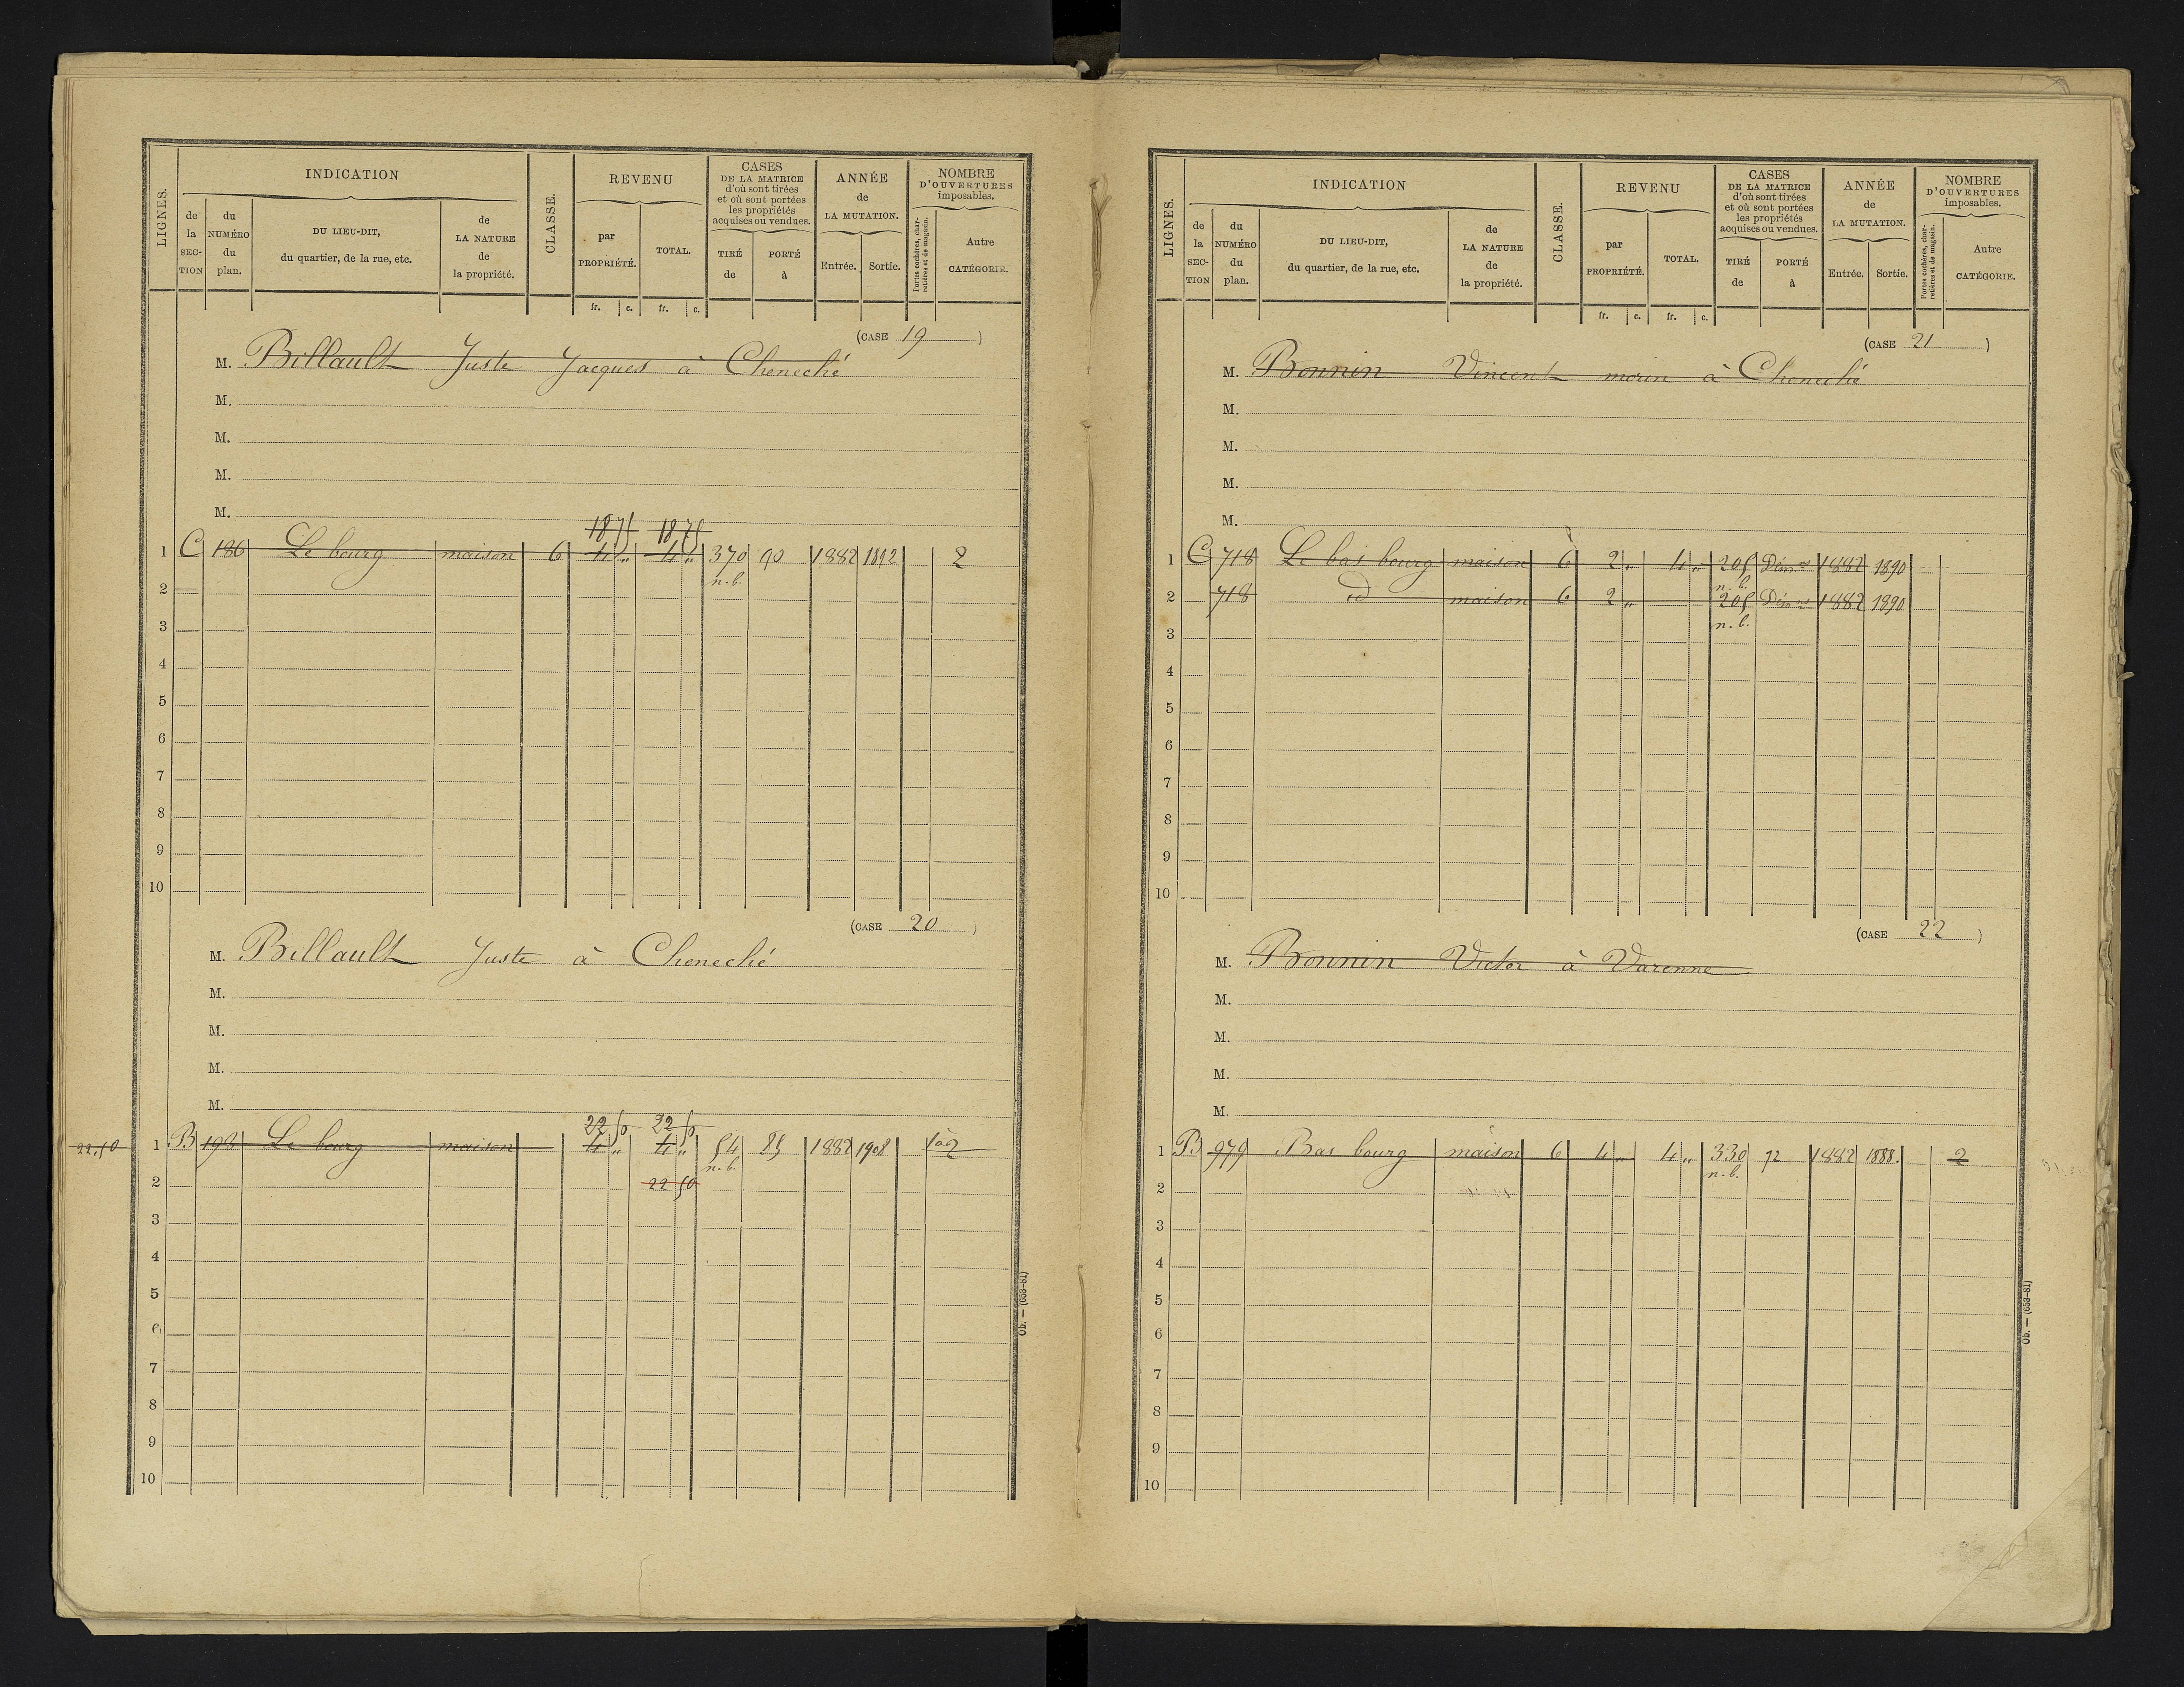 LIGNES. INDICATION CLASSE. REVENU CASES DE LA MATRICE d'où sont tirées et où sont portées les propriétés acquises ou vendues. ANNÉE de LA MUTATION. NOMBRE D'OUVERTURES imposables.
de la SECTION du NUMÉRO du plan. DU LIEU-DIT, du quartier, de la rue, etc. de LA NATURE de la propriété. par PROPRIÉTÉ. TOTAL. TIRÉ de PORTÉ à Entrée. Sortie. Portes cochères, charretières et de magasin. Autre CATÉGORIE.
fr. c. fr. c.
(CASE 19)
M. Billault Juste Jacques à Cheneché
M.
M.
M.
M.
18 75 18 75
1 C 186 Le bourg maison 6 4 " 4 " 370 90 1882 1892 2
n.b.
2
3
4
5
6
7
8
9
10
(CASE 20)
M. Billault Juste à Cheneché
M.
M.
M.
M.
22 50 22 50
22.50 1 B 198 Le bourg maison 4 " 4 " 54 85 1882 1908 1à2
n.b.
2 22 50
3
4
5
6
7
8
9
10
Ob. — (653-81)
LIGNES. INDICATION CLASSE. REVENU CASES DE LA MATRICE d'où sont tirées et où sont portées les propriétés acquises ou vendues. ANNÉE de LA MUTATION. NOMBRE D'OUVERTURES imposables.
de la SECTION du NUMÉRO du plan. DU LIEU-DIT, du quartier, de la rue, etc. de LA NATURE de la propriété. par PROPRIÉTÉ. TOTAL. TIRÉ de PORTÉ à Entrée. Sortie. Portes cochères, charretières et de magasin. Autre CATÉGORIE.
fr. c. fr. c.
(CASE 21)
M. Bonnin Vincent morin à Cheneché
M.
M.
M.
M.
1 C 718 Le bas bourg maison 6 2 " 4 " 205 1882 1890
n.b.
2 718 id maison 6 2 " 205 1882 1890
n.b.
3
4
5
6
7
8
9
10
(CASE 22)
M. Bonnin Victor à Varenne
M.
M.
M.
M.
1 B 979 Bas bourg maison 6 4 " 4 " 330 72 1882 1888. 2
n.b.
2
3
4
5
6
7
8
9
10
Ob. — (653-81)